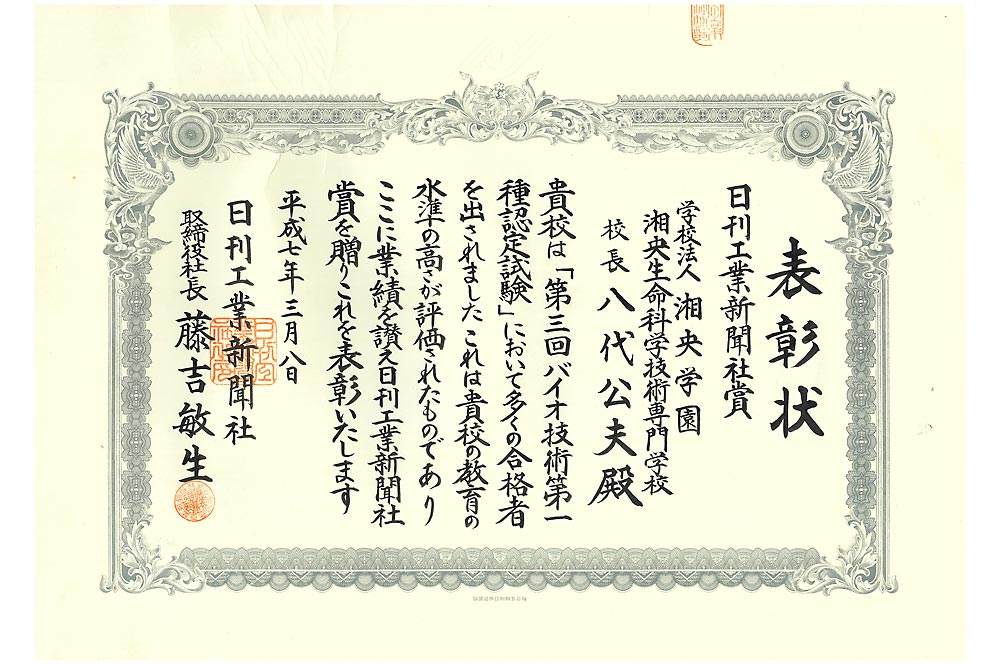 表彰状
日刊工業新聞社賞
学校法人 湘央学園
湘央生命科学技術専門学校
校長 八代公夫殿
貴校は「第三回バイオ技術第一
種認定試験」において多くの合格者
を出されました これは貴校の教育の
水準の高さが評価されたものであり
ここに業績を讃え日刊工業新聞社
賞を贈りこれを表彰いたします
平成七年三月八日
日刊工業新聞社
取締役社長 藤吉敏生